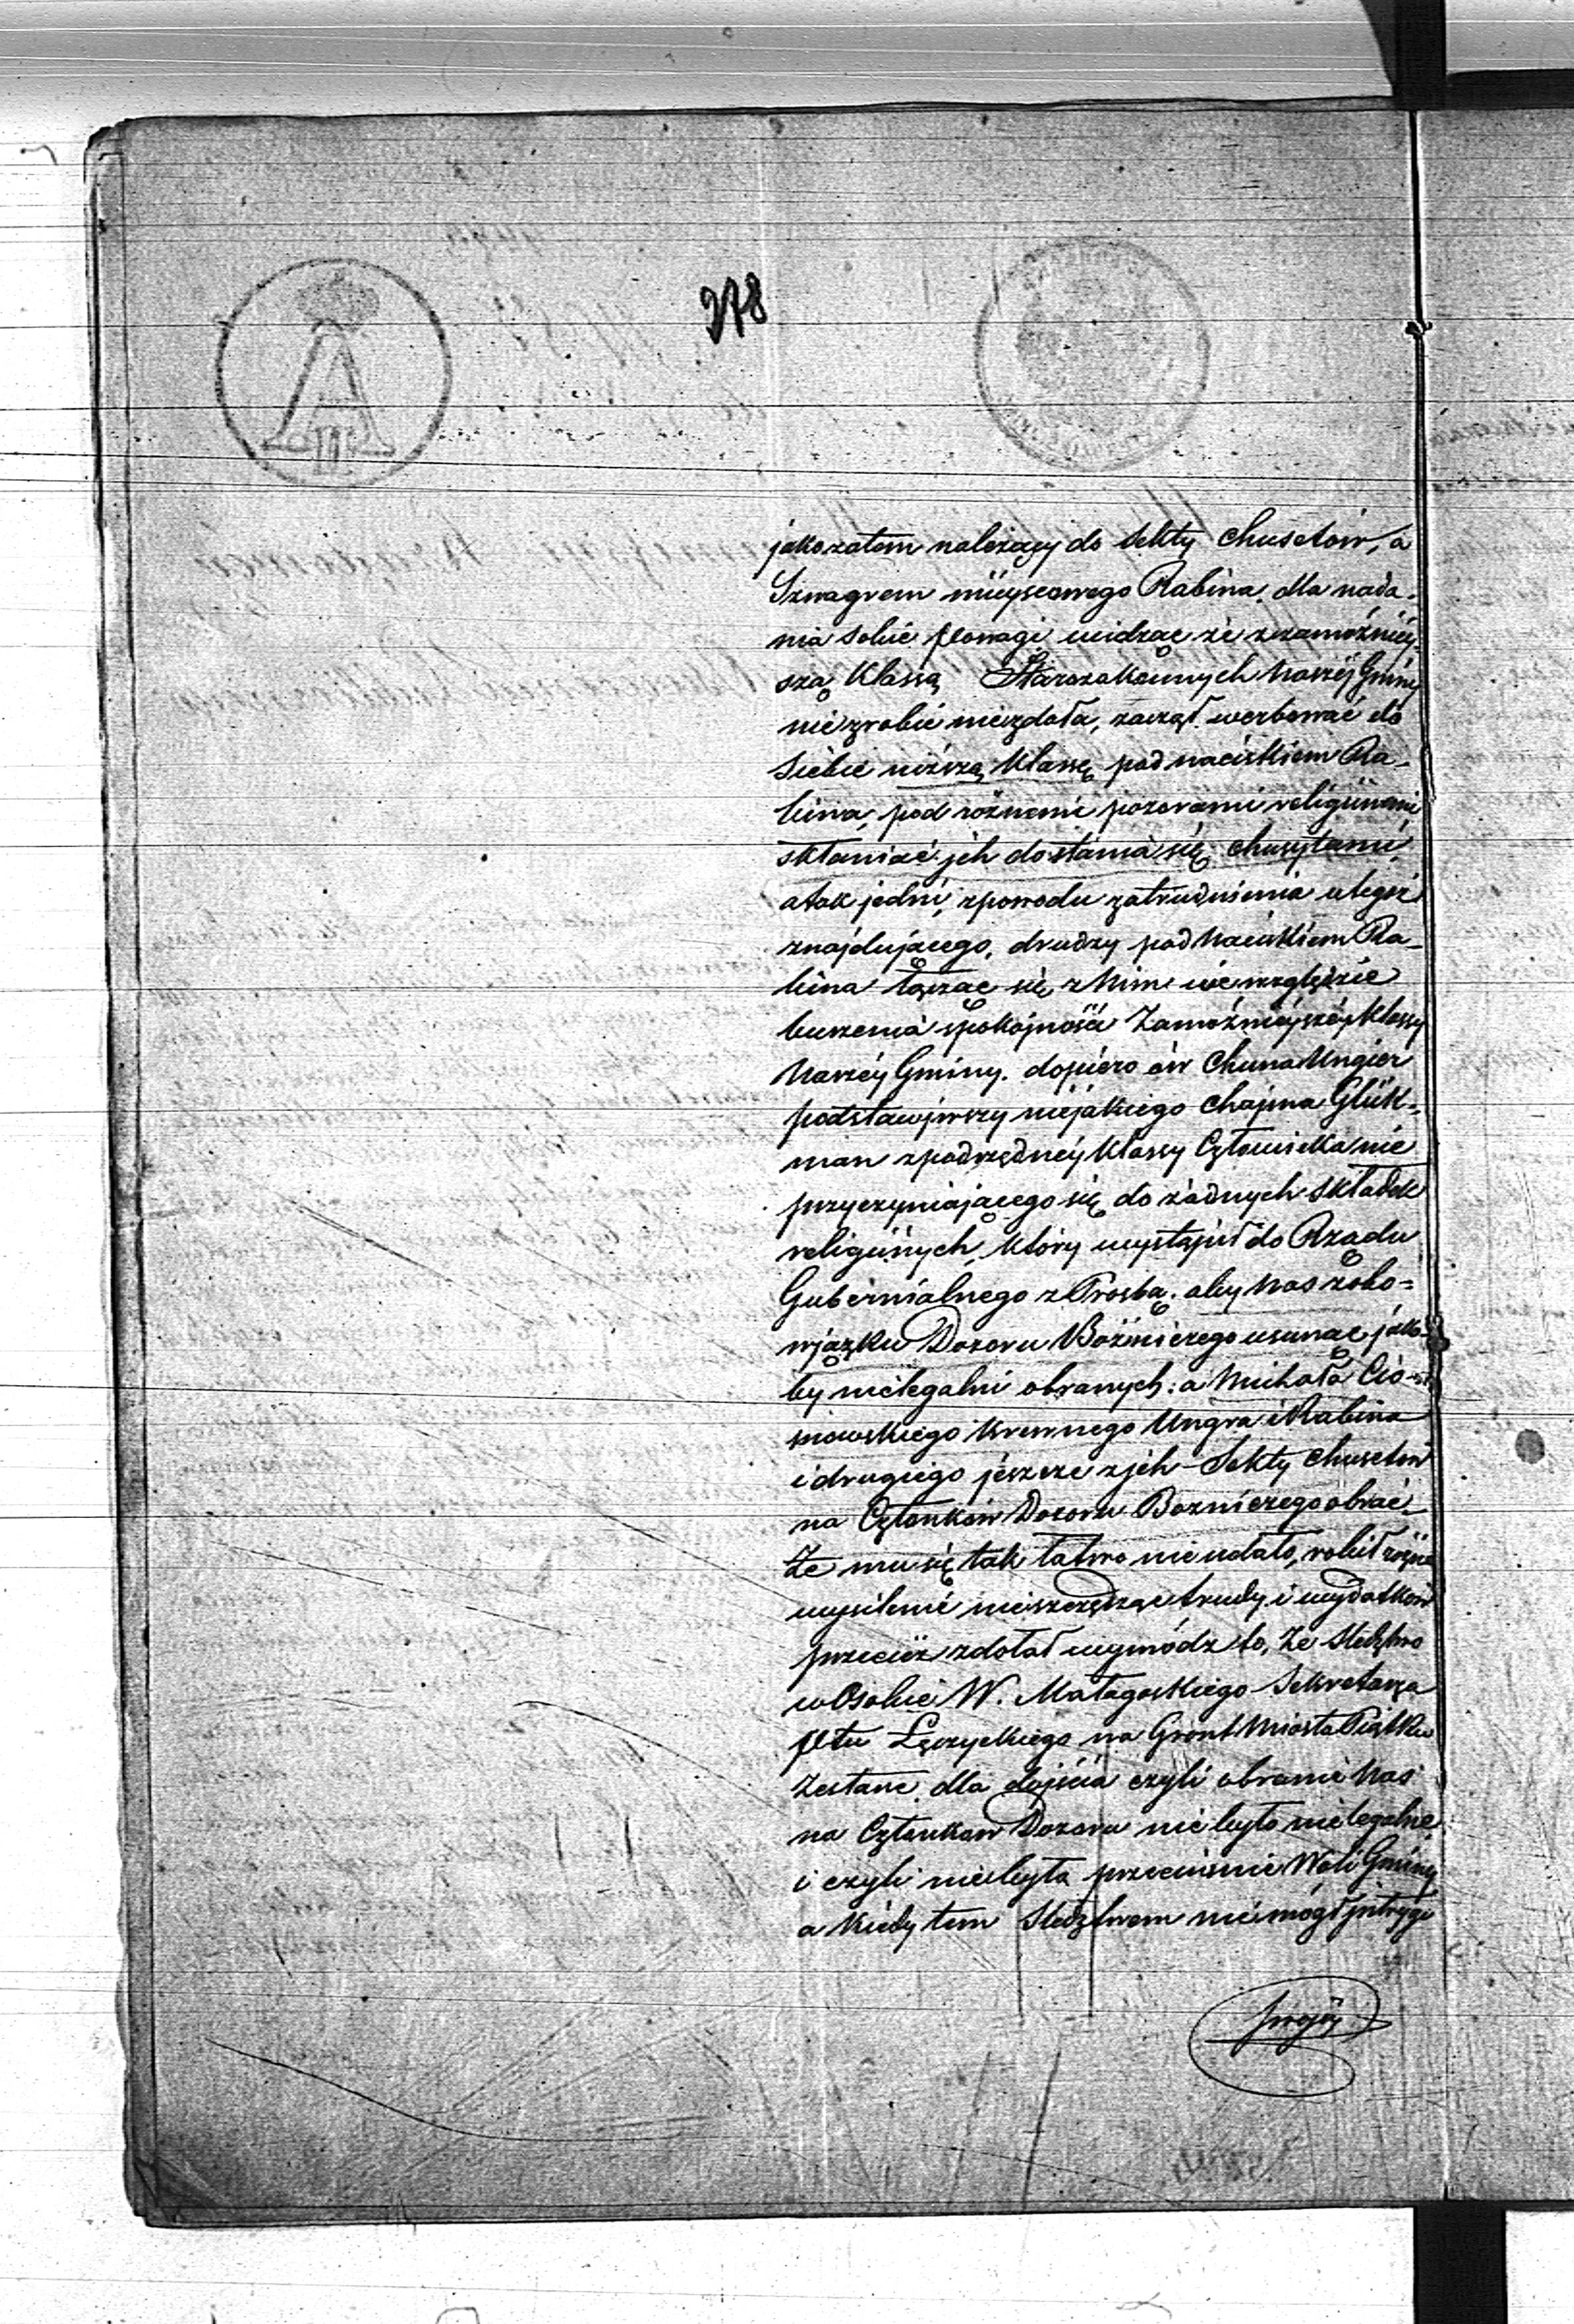 278
jako zatem należący do Sekty Chusetów, a
Szwagrem miiyscowego Rabina. dla nada-
nia sobie powagi widząc że z zamożniey-
szą Klassą Starozakonnych Naszéj Gminy
nie zrobić niezdoła, zaczął werbować do
siebie niższą Klassę pod naciskiem Ra-
bina, pod różnemi pozorami religiinemi
skłaniać jch do stania się chusytami,
a tak jedni, z powodu zatrudnienia u tegoż
znajdującego, drudzy pod Naciskiem Ra-
bina łącząc się z Nim we względzie
burzenia spokojności Zamożniejszéj Klassy
Naszéy Gminy. dopiero ów Chuna Ungier
podstawiwszy niejakiego Chajma Glük-
man z podrzędnéy Klassy Człowieka nie
przyczyniającego się do żadnych składek
religiinych, który wystąpił do Rządu
Gubernialnego z Prośbą. aby Nas z obo-
wjązku Dozoru Bożniczego usunąć jako-
by nielegalni obranych: a Michała Cio-
snowskiego Krewnego Ungra i Rabina
i drugiego jeszcze z jch Sekty Chusetów
na Członków Dozoru Bozniczego obrać
Że mu się tak łatwo nie udało, robił
wysilenie nieszczędząc trudy i wydatków
przecież zdołał wymódz to, że Sledztwo
w Osobie W. Małagoskiego Sekretarza
Ptu Łęczyckiego na Gront Miasta Piątku
Zesłane. dla dojścia czyli obranie Nas
na Członkow Dozoru nie było nielegalne,
i czyli nie była przeciwnie Woli Gminy
a kiedy tem Sledztwem nie mógł jntrygi
swojéj